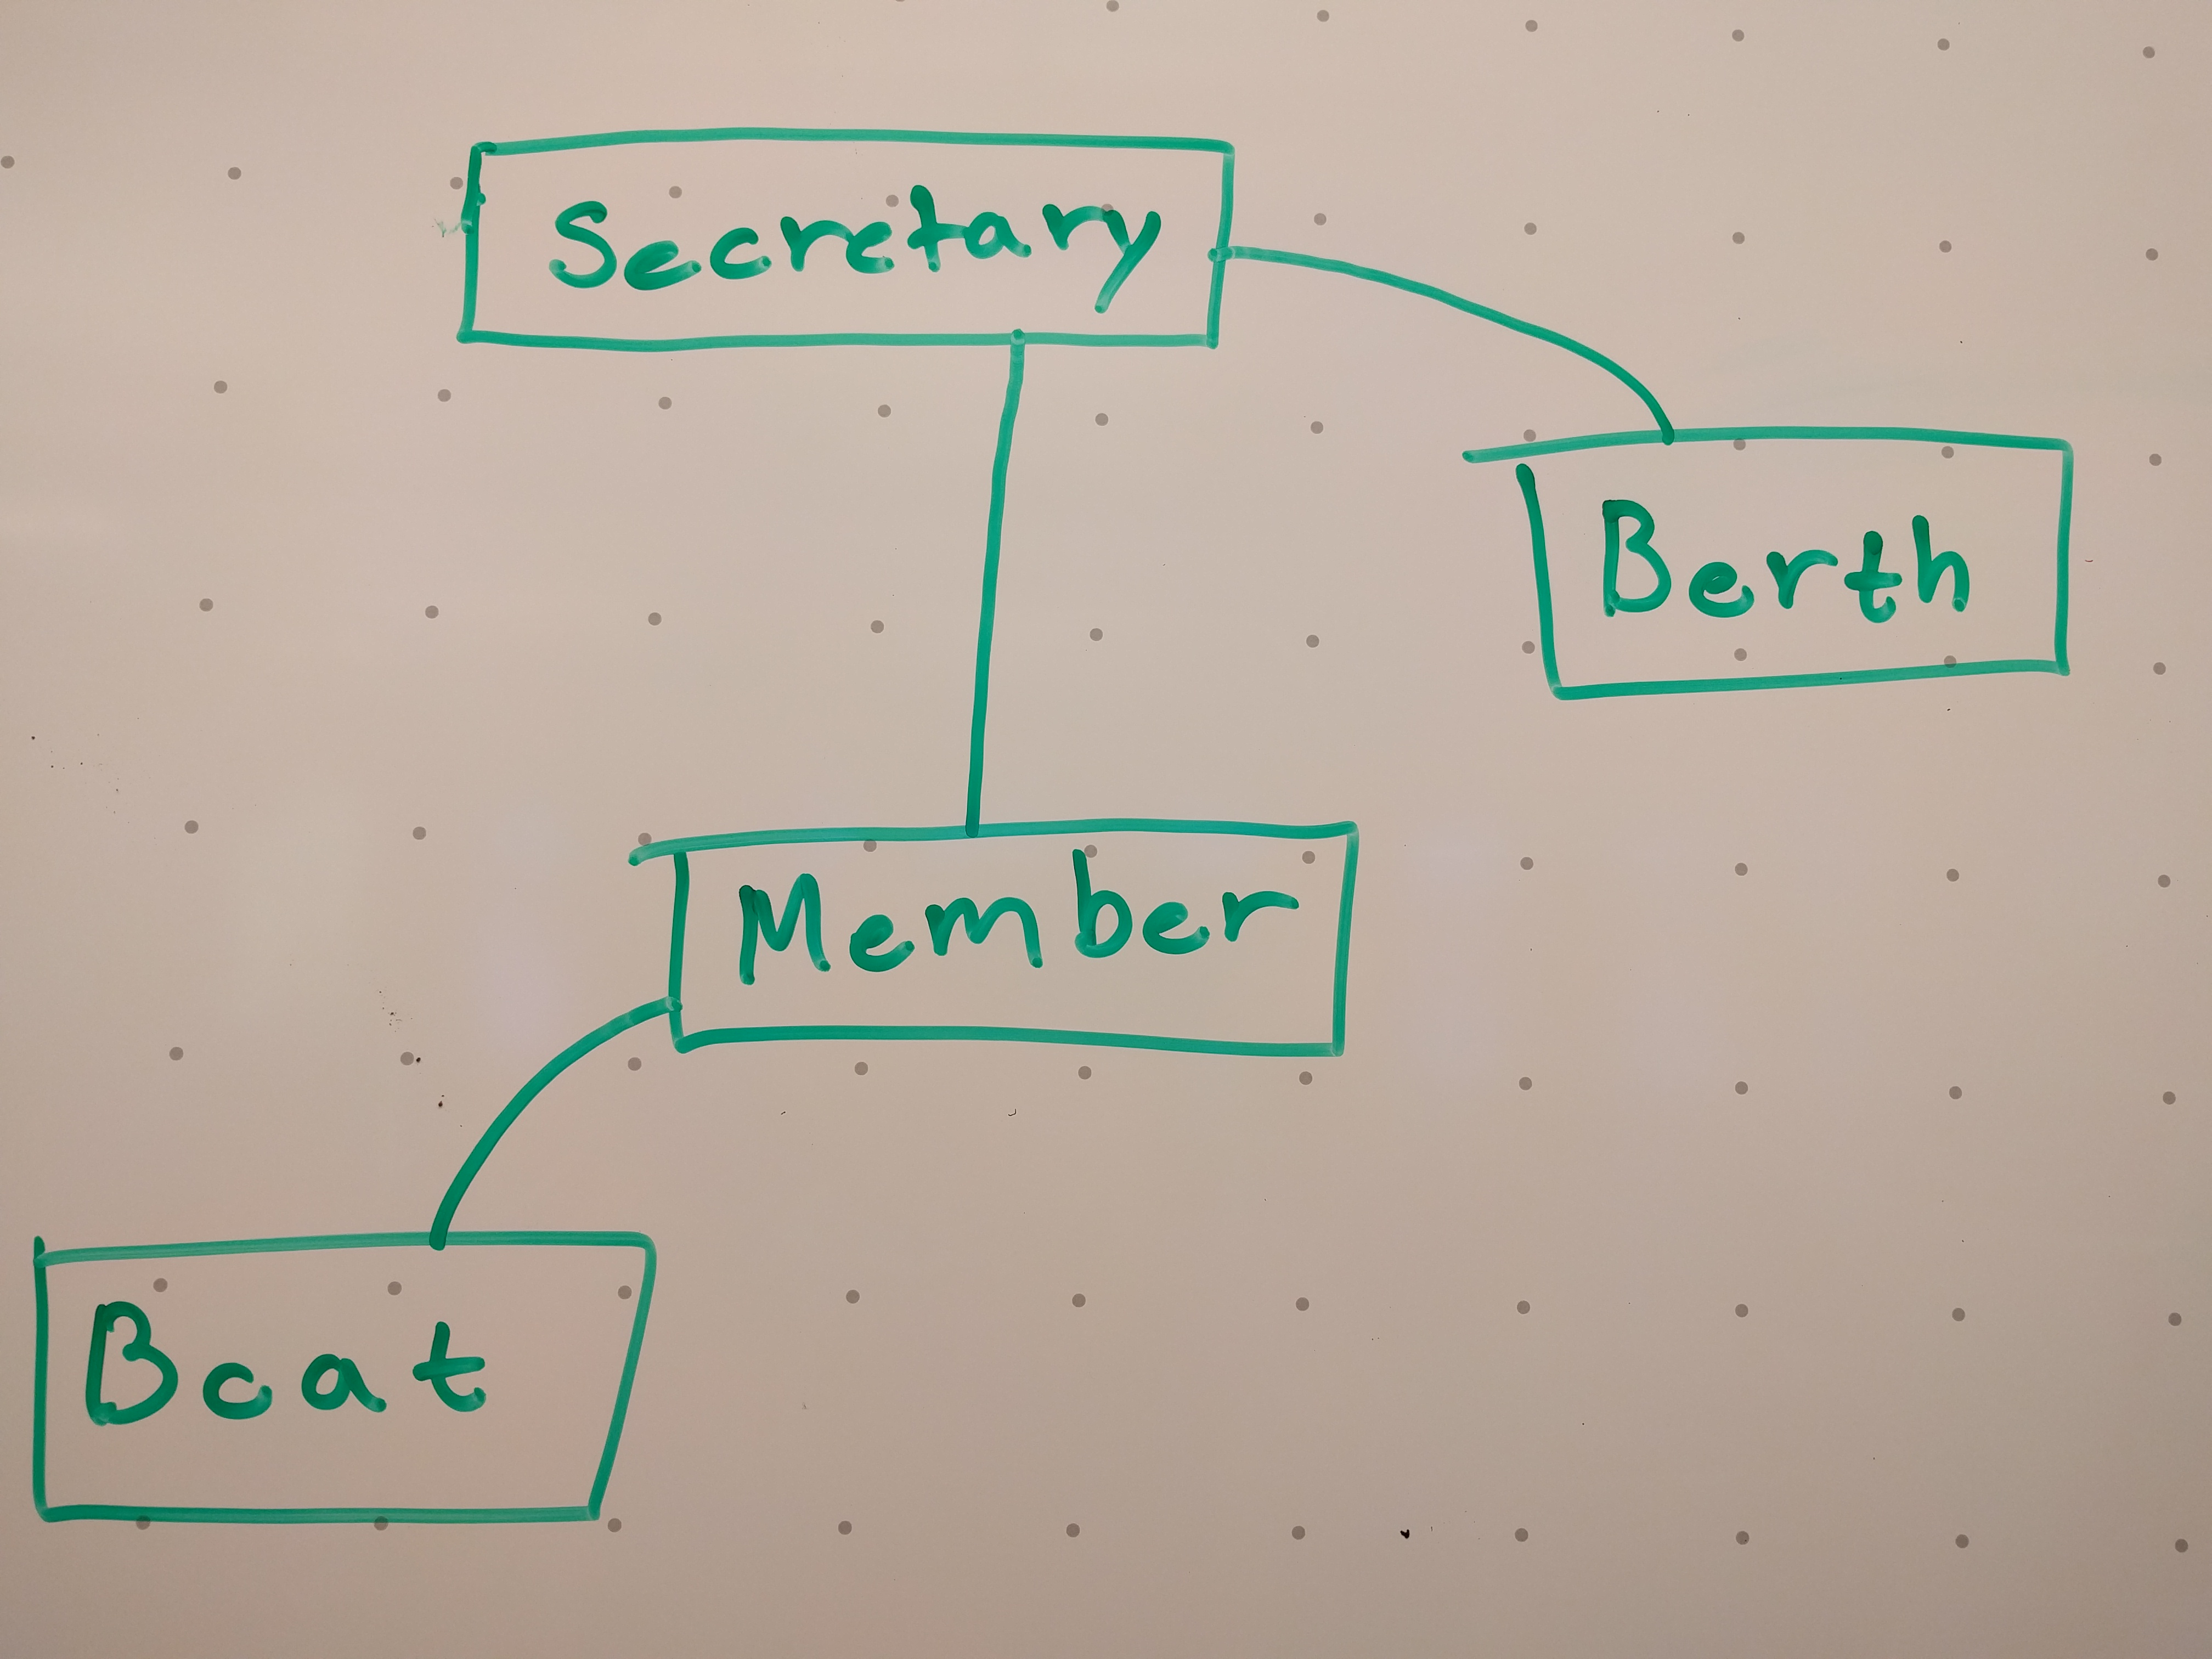 Secretary
Berth
Member
Boat